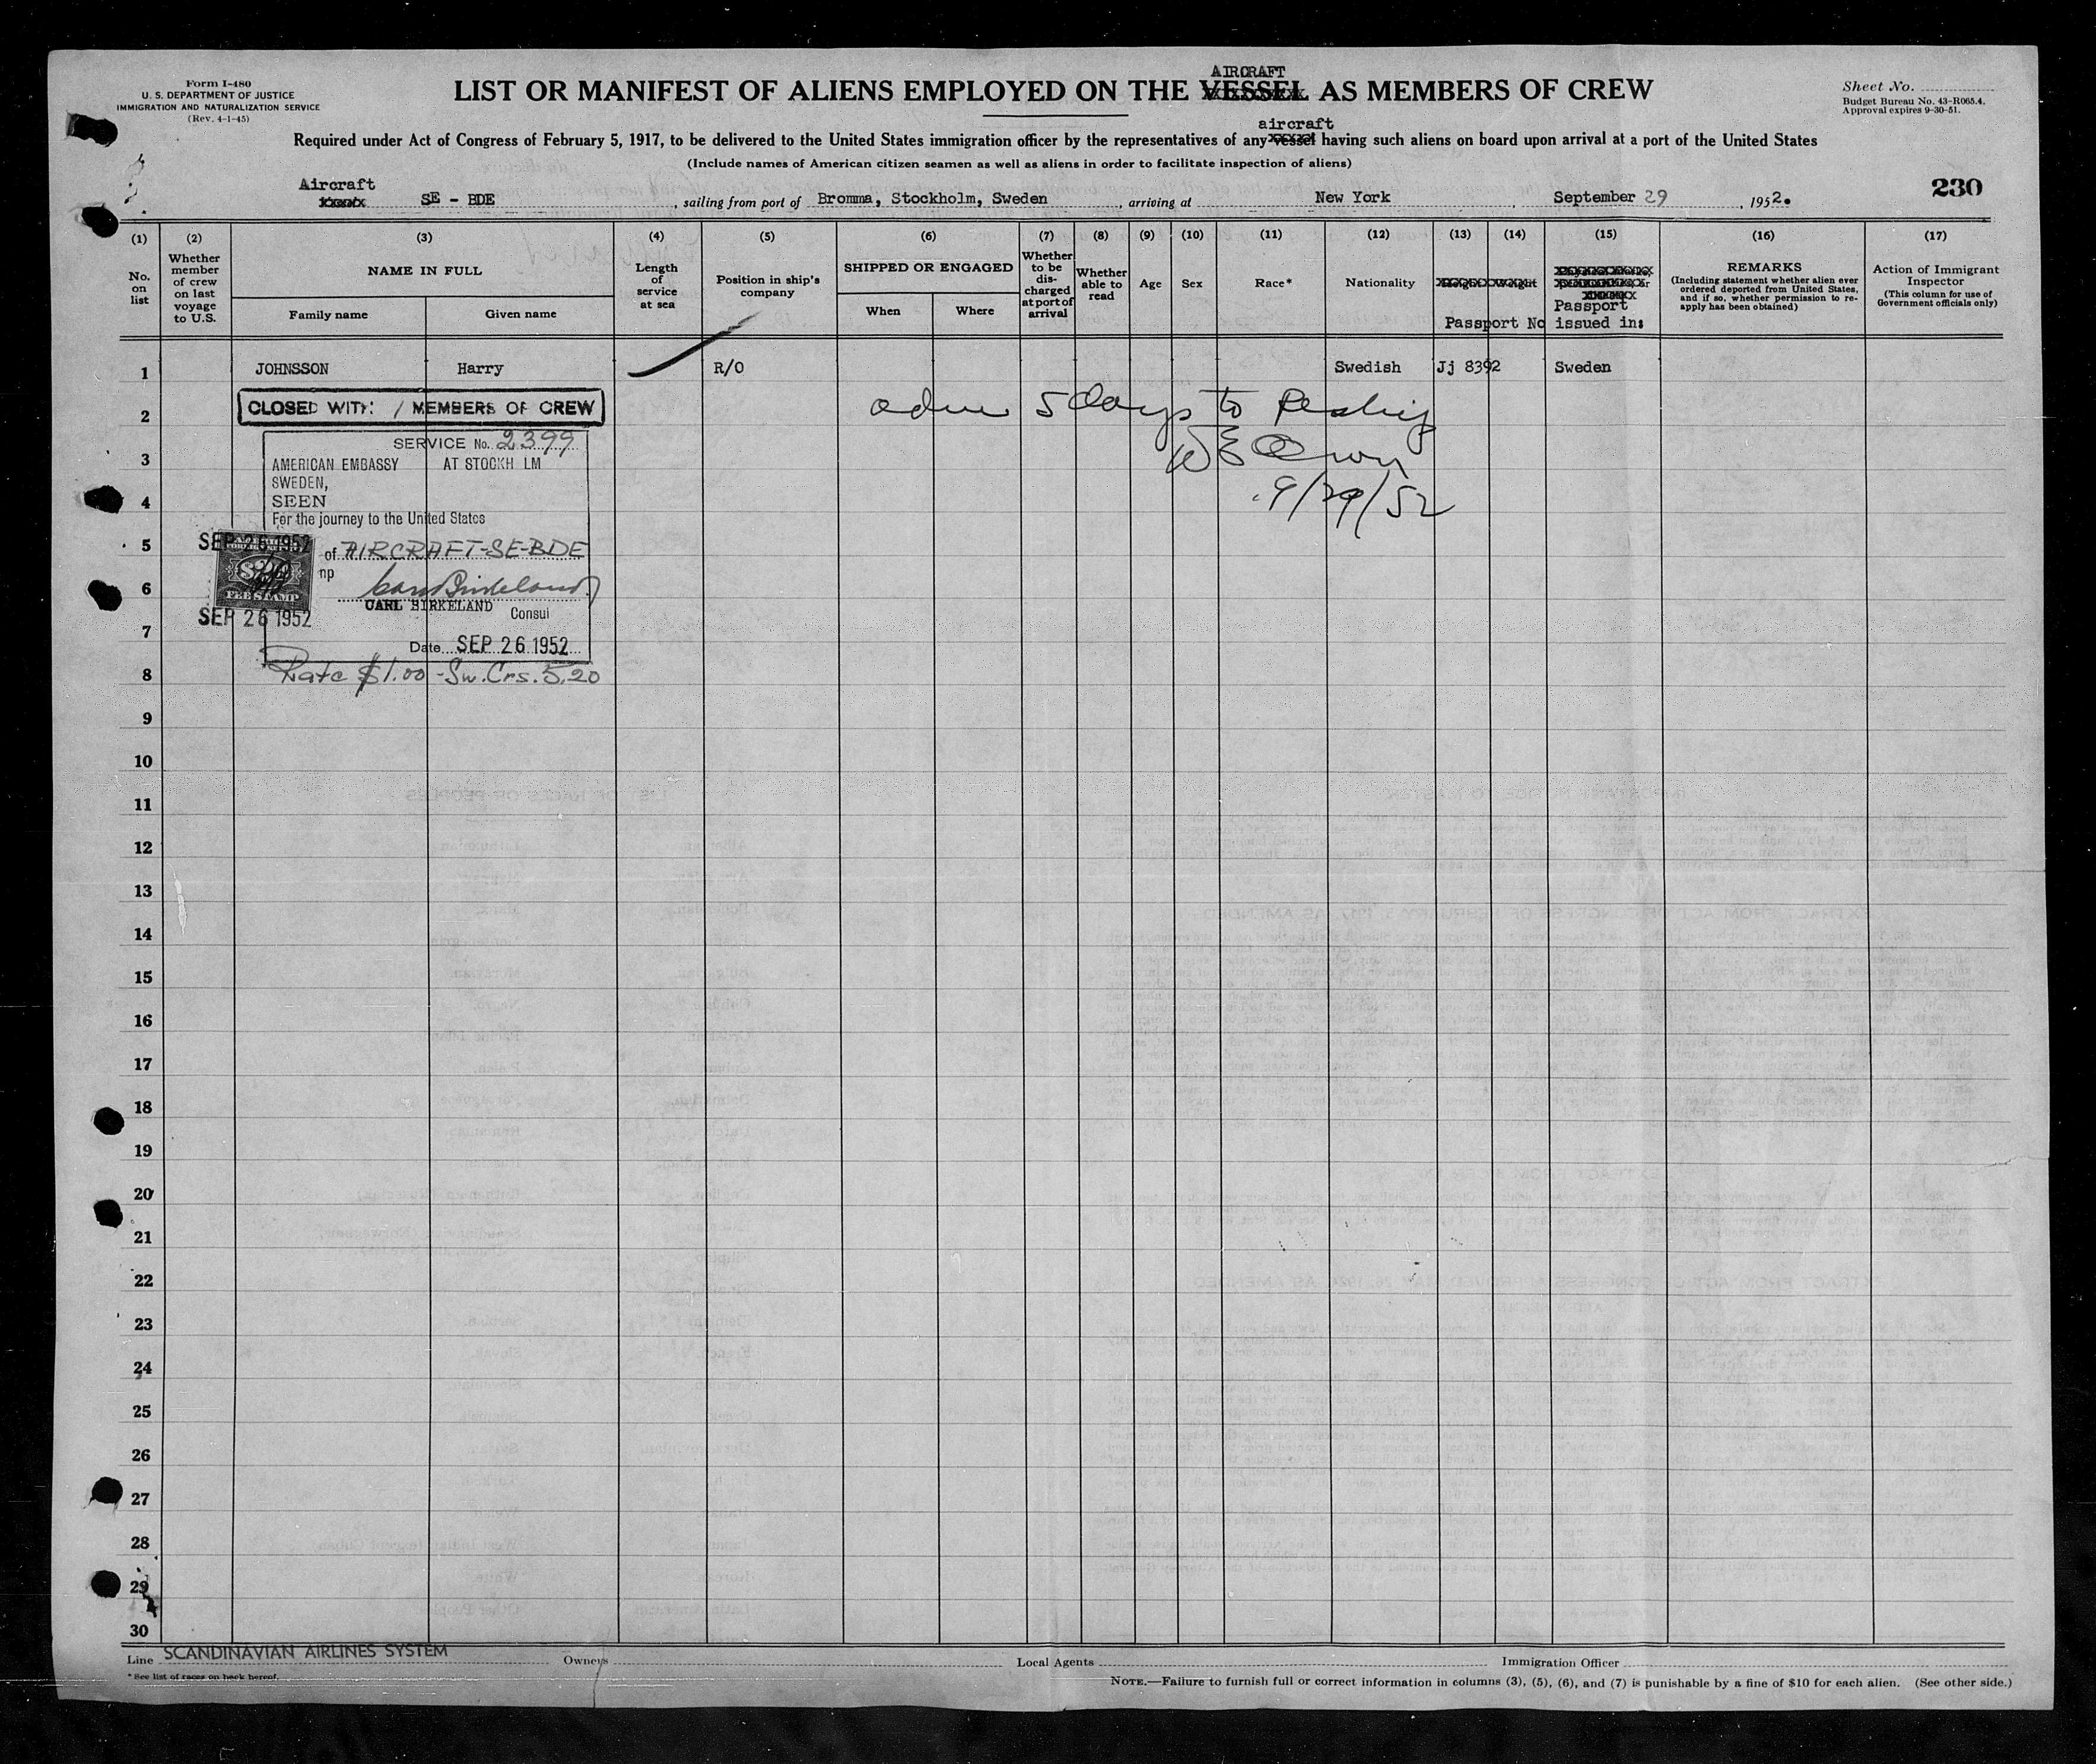 Form I-480
U. S. DEPARTMENT OF JUSTICE
IMMIGRATION AND NATURALIZATION SERVICE
(Rev. 4-1-45)
AIRCRAFT
LIST OR MANIFEST OF ALIENS EMPLOYED ON THE VESSEL AS MEMBERS OF CREW
Sheet No.
Budget Bureau No. 43-R065.4.
Approval expires 9-30-51.
aircraft
Required under Act of Congress of February 5, 1917, to be delivered to the United States immigration officer by the representatives of any vessel having such aliens on board upon arrival at a port of the United States
(Include names of American citizen seamen as well as aliens in order to facilitate inspection of aliens)
Aircraft SE - BDE, sailing from port of Bromma, Stockholm, Sweden, arriving at New York, September 29, 1952.
230
(1) (2) (3) (4) (5) (6) (7) (8) (9) (10) (11) (12) (13) (14) (15) (16) (17)
No. on list
Whether member of crew on last voyage to U.S.
NAME IN FULL
Family name
Given name
Length of service at sea
Position in ship's company
SHIPPED OR ENGAGED
When
Where
Whether to be discharged at port of arrival
Whether able to read
Age
Sex
Race*
Nationality
Passport No
Passport issued in:
REMARKS
(Including statement whether alien ever ordered deported from United States, and if so, whether permission to re-apply has been obtained)
Action of Immigrant Inspector
(This column for use of Government officials only)
1 JOHNSSON Harry R/O Swedish Jj 8392 Sweden
CLOSED WITH: / MEMBERS OF CREW
2 adm 5 days to
3
9/29/52
4
SERVICE No. 2399
AMERICAN EMBASSY AT STOCKH LM
SWEDEN,
SEEN
For the journey to the United States
5
SEP 26 1952
of AIRCRAFT-SE-BDE
np
FEE STAMP
6
Carl Birkeland
CARL BIRKELAND
Consul
SEP 26 1952
7
Date SEP 26 1952
8 Rate $1.00 - Sw. Crs. 5.20
9
10
11
12
13
14
15
16
17
18
19
20
21
22
23
24
25
26
27
28
29
30
Line SCANDINAVIAN AIRLINES SYSTEM Owners Local Agents Immigration Officer
* See list of races on back hereof.
NOTE.—Failure to furnish full or correct information in columns (3), (5), (6), and (7) is punishable by a fine of $10 for each alien. (See other side.)